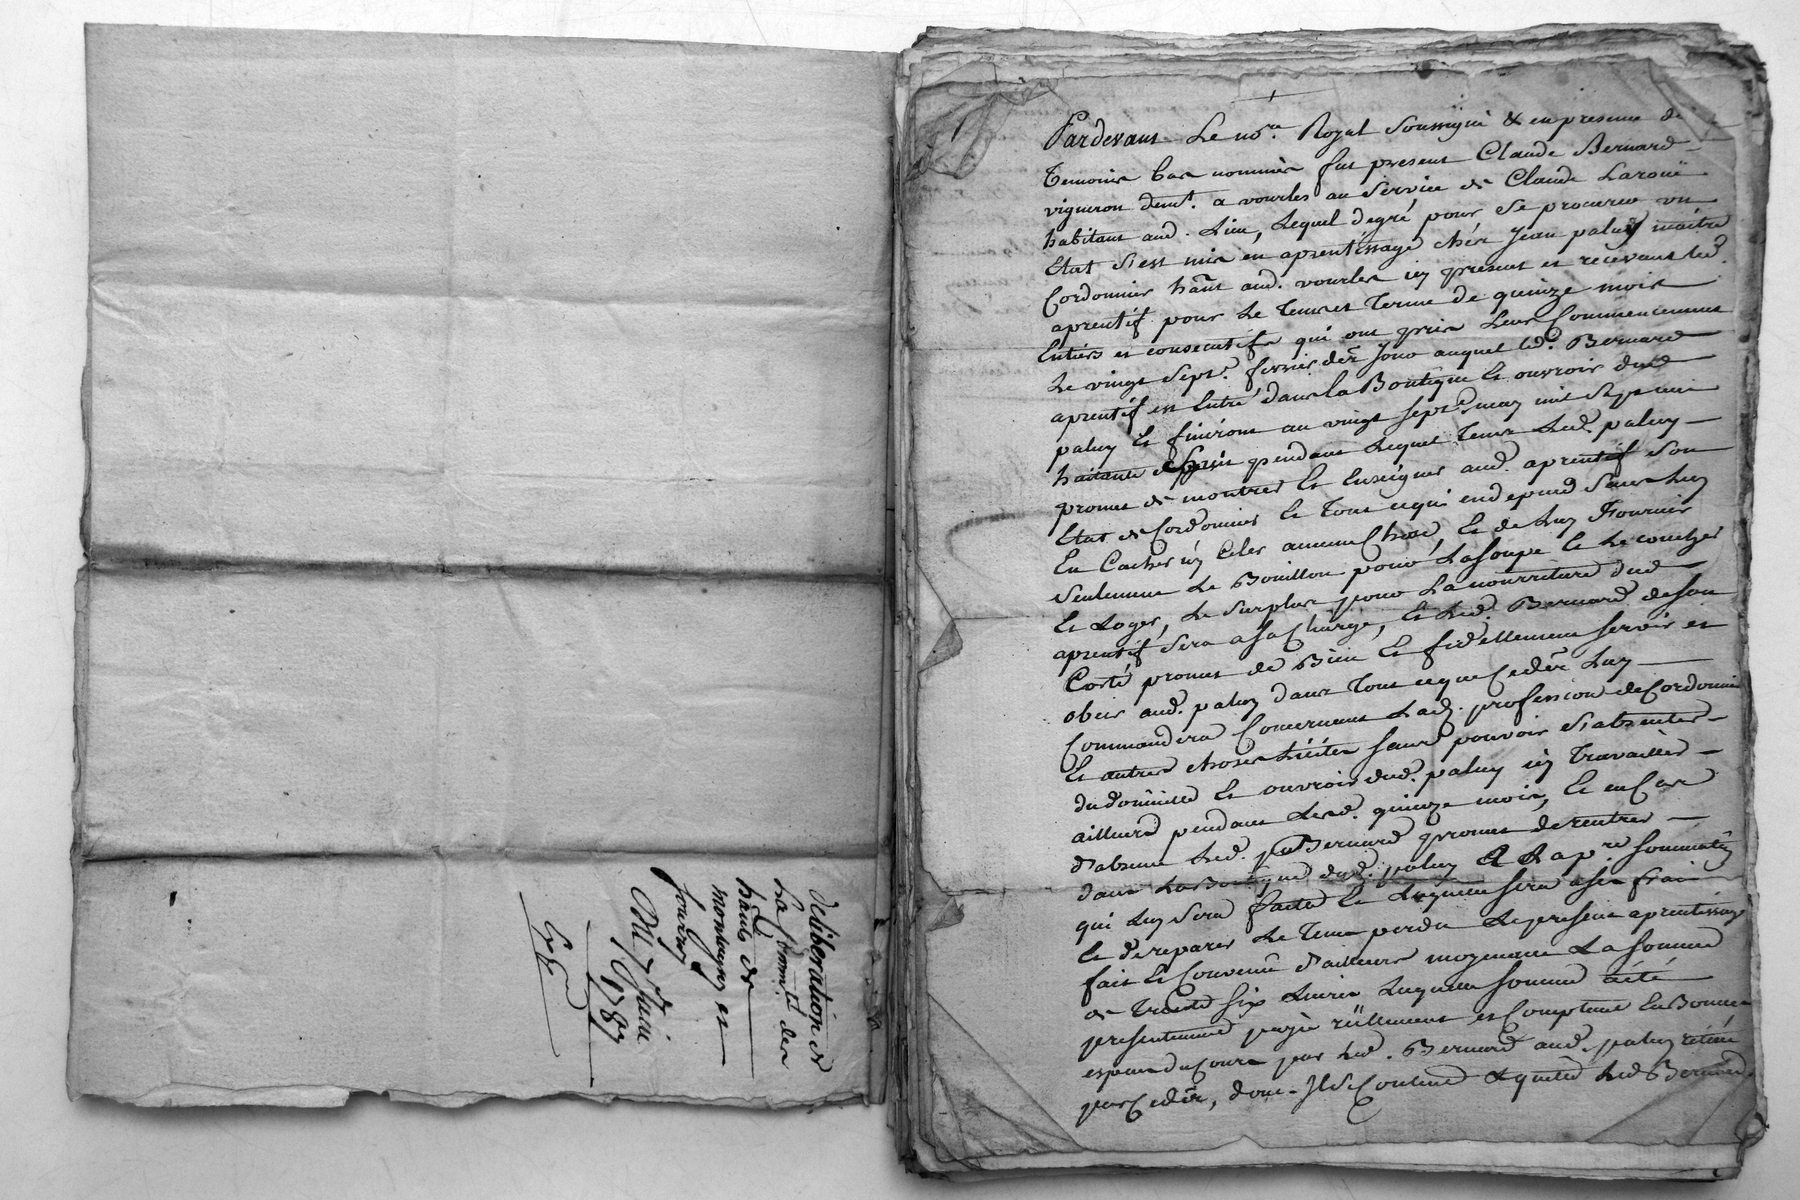 deliberation de
La Commté. des
hants de
montagny et
fourny
Du 7 Juin
1787
Pardevant Le nore. Royal Soussigné & en presence de
Temoins bas nommés fut present Claude Bernard
vigneron demt. a vourles au Service de Claude Laroue
habitant aud. Lieu, Lequel degré pour se procurer un
Etat s'est mis en aprentissage chés Jean paluy maitre
Cordonnier hant aud. vourles icy present et recevant led.
aprentif pour Le Tems et Terme de quinze mois
Entiers et consecutifs qui ont pris Leur Commencement
Le vingt Sept. fevrier der. jour auquel led. Bernard
aprentif est Entré dans la Boutique Et ouvroir dud
paluy Et finiront au vingt sept may mil Sept cent
huitante pendant Lequel Tems Led. paluy
promet de montrer Et Enseigner aud. aprentif Son
Etat de Cordonnier Et Tout cequi endepend Sans Luy
En Cacher ny Celer aucune Chose, Et de Luy Fournir
Seulement Le Bouillon pour La Soupe Et Le coucher
Et Loger, Le Surplus pour La nourriture dud
aprentif Sera a Sa Charge, Et Led. Bernard de Son
Coté promet de Bien Et fidellement Servir et
obeir aud. paluy dans Tout ceque Ceder. Luy
Commandera Concernant Lad. profession de Cordonnier
Et autres choses Licites Sans pouvoir s'absenter
du domicille Et ouvroir dud. paluy ny Travailler
ailleurs pendant Lesd. quinze mois, Et en Cas
d'absence Led. Bernard promet de rentrer
dans La Boutique dud. paluy A La pre. Sommation
qui Luy Sera faitte Et Laquelle Sera a Ses frais
Et de reparer Le Tems perdu Le present aprentissage
fait Et Convenu d'ailleurs moyenant La Somme
de Trente Six Livres Laquelle Somme a été
presentement payée réellement et Comptant En Bonnes
especes du Cours par Led. Bernard aud. paluy retirée
par Ceder, dont Il Se Contente & quitte Led Bernard